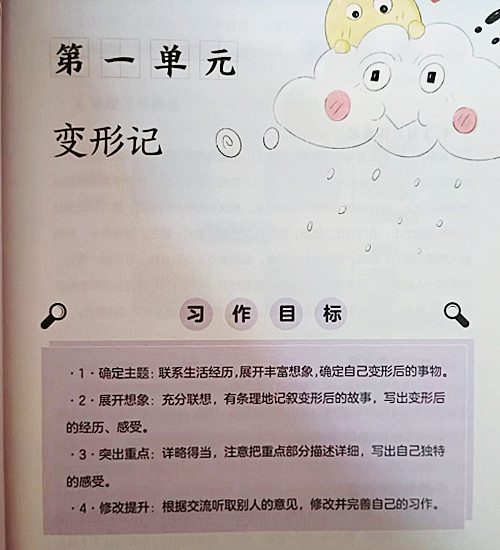 第一单元
变形记
习作目标
·1·确定主题：联系生活经历，展开丰富想象，确定自己变形后的事物。
·2·展开想象：充分联想，有条理地记叙变形后的故事，写出变形后
的经历、感受。
·3·突出重点：详略得当，注意把重点部分描述详细，写出自己独特
的感受。
·4·修改提升：根据交流听取别人的意见，修改并完善自己的习作。